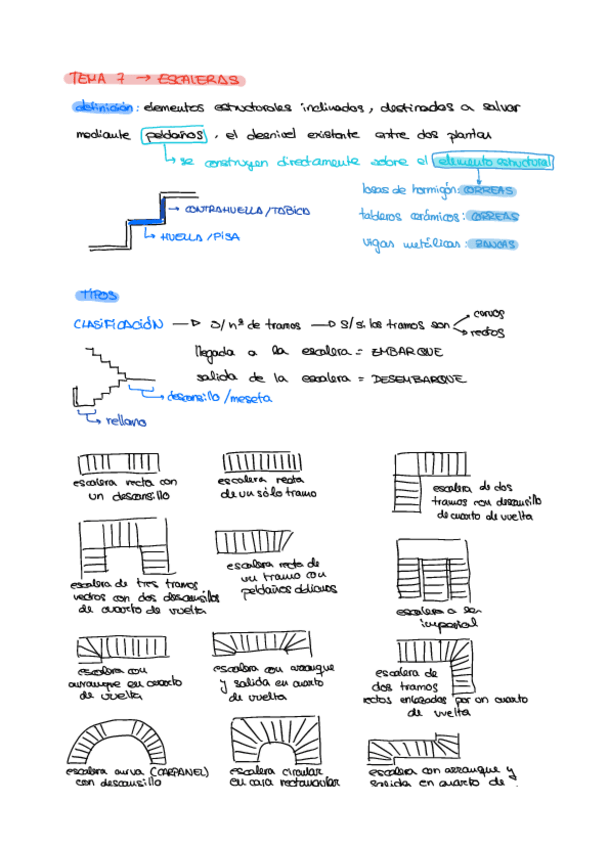 TEMA 7 → ESCALERAS
definición: elementos estructurales inclinados, destinados a salvar
mediante peldaños, el desnivel existente entre dos plantas
↳ se construyen directamente sobre el elemento estructural
losas de hormigón: CORREAS
CONTRAHUELLA/TABICA
tableros cerámicos: CORREAS
HUELLA/PISA
vigas metálicas: ZANCAS
TIPOS
CLASIFICACIÓN → S/nº de tramos → S/si los tramos son
curvos
rectos
llegada a la escalera = EMBARQUE
salida de la escalera = DESEMBARQUE
descansillo/meseta
rellano
escalera recta con
un descansillo
escalera recta
de un sólo tramo
escalera de dos
tramos con descansillo
de cuarto de vuelta
escalera de tres tramos
rectos con dos descansillos
de cuarto de vuelta
escalera recta de
un tramo con
peldaños oblicuos
escalera a la
imperial
escalera con
arranque en cuarto
de vuelta
escalera con arranque
y salida en cuarto
de vuelta
escalera de
dos tramos
rectos enlazados por un cuarto
de vuelta
escalera curva (CARPANEL)
con descansillo
escalera circular
en caja rectangular
escalera con arranque y
salida en cuarto de